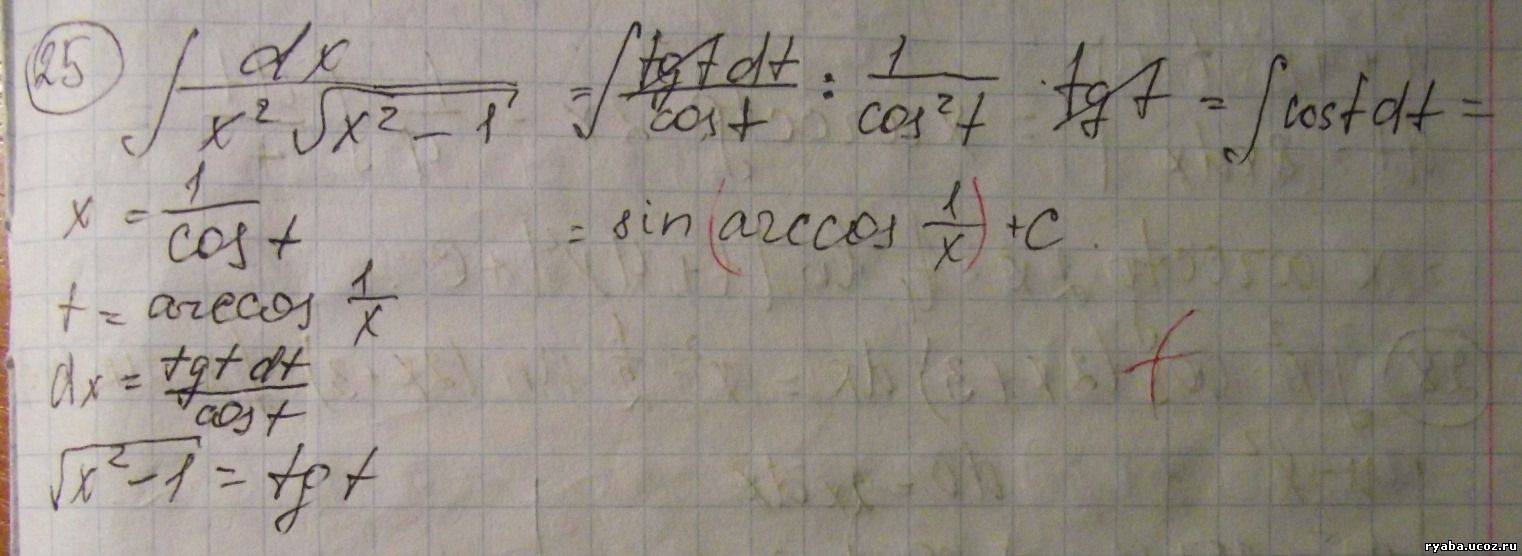 25 ∫ dx / (x² √(x² – 1)) = ∫ tgt dt / cost : 1 / cos²t · tgt = ∫ cost dt =
x = 1 / cost
= sin (arccos 1/x) + C.
t = arccos 1/x
dx = tgt dt / cost
+
√(x² – 1) = tgt
ryaba.ucoz.ru